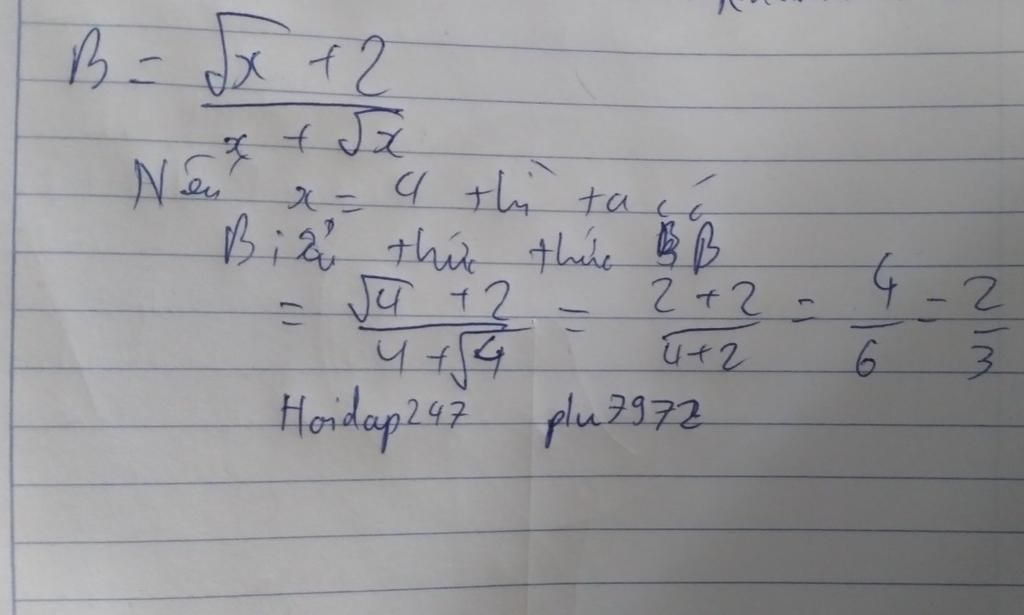 B = \frac{\sqrt{x} + 2}{x + \sqrt{x}}
Nếu x = 4 thì ta có
Biểu thức thức B
= \frac{\sqrt{4} + 2}{4 + \sqrt{4}} = \frac{2 + 2}{4 + 2} = \frac{4}{6} = \frac{2}{3}
Hoidap247 plu7972